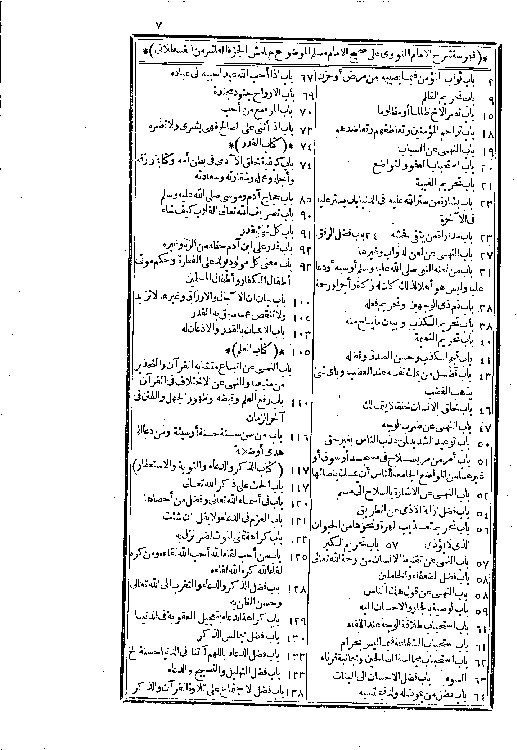 ٧
*(فهرسة شرح الامام النووى على صحيح الامام مسلم الموضوع بهامش الجزء العاشر من القسطلانى)*
٢ باب ثواب المؤمن فيما يصيبه من مرض أو حزن
٩ باب تحريم الظلم
١٥ باب نصر الاخ ظالما أو مظلوما
١٨ باب تراحم المؤمنين وتعاطفهم وتعاضدهم
١٩ باب النهى عن السباب
٢٠ باب استحباب العفو والتواضع
٢١ باب تحريم الغيبة
٢٣ باب بشارة من ستر الله عليه فى الدنيا بان يستر عليه
فى الآخرة
٢٣ باب مداراة من يتقى فحشه ٢٤ باب فضل الرفق
٢٧ باب النهى عن لعن الدواب وغيرها
٣١ باب من لعنه النبى صلى الله عليه وسلم أو سبه أو دعا
عليه وليس هو أهلا لذلك كان له زكاة وأجرا ورحمة
٣٨ باب ذم ذى الوجهين وتحريم فعله
٣٨ باب تحريم الكذب وبيان ما يباح منه
٤٠ باب تحريم النميمة
٤١ باب قبح الكذب وحسن الصدق وفضله
٤٣ باب فضل من يملك نفسه عند الغضب وبأى شئ
يذهب الغضب
٤٦ باب خلق الانسان خلقا لا يتمالك
٤٧ باب النهى عن ضرب الوجه
٥٠ باب الوعيد الشديد لمن عذب الناس بغير حق
٥١ باب أمر من مر بسلاح فى مسجد أو سوق أو
غيرهما من المواضع الجامعة للناس أن يمسك بنصالها
٥٢ باب النهى عن الاشارة بالسلاح الى مسلم
٥٤ باب فضل ازالة الاذى عن الطريق
٥٦ باب تحريم تعذيب الهرة ونحوها من الحيوان
الذى لا يؤذى ٥٧ باب تحريم الكبر
٥٧ باب النهى عن تقنيط الانسان من رحمة الله تعالى
٥٨ باب فضل الضعفاء والخاملين
٥٨ باب النهى عن قول هلك الناس
٥٩ باب الوصية بالجار والاحسان اليه
٦١ باب استحباب طلاقة الوجه عند اللقاء
٦١ باب استحباب الشفاعة فيما ليس بحرام
٦٢ باب استحباب مجالسة الصالحين ومجانبة قرناء
السوء ٦٣ باب فضل الاحسان الى البنات
٦٤ باب فضل من يموت له ولد فيحتسبه
٦٧ باب اذا أحب الله عبدا حببه الى عباده
٦٩ باب الارواح جنود مجندة
٧٠ باب المرء مع من أحب
٧٣ باب اذا أثنى على الصالح فهى بشرى ولا تضره
٧٤ *(كتاب القدر)*
٧٤ باب كيفية خلق الآدمى فى بطن أمه وكتابة رزقه
وأجله وعمله وشقاوته وسعادته
٨٥ باب حجاج آدم وموسى صلى الله عليه وسلم
٩٠ باب تصريف الله تعالى القلوب كيف شاء
٩١ باب كل شئ بقدر
٩٢ باب قدر على ابن آدم حظه من الزنا وغيره
٩٣ باب معنى كل مولود يولد على الفطرة وحكم موتى
أطفال الكفار وأطفال المسلمين
١٠٠ باب بيان ان الآجال والارزاق وغيرها لا تزيد
ولا تنقص عما سبق به القدر
١٠٣ باب الايمان بالقدر والاذعان له
١٠٥ *(كتاب العلم)*
باب النهى عن اتباع متشابه القرآن والتحذير
من متبعيه والنهى عن الاختلاف فى القرآن
١١٠ باب رفع العلم وقبضه وظهور الجهل والفتن فى
آخر الزمان
١١٦ باب من سن سنة حسنة أو سيئة ومن دعا الى
هدى أو ضلالة
١١٧ (كتاب الذكر والدعاء والتوبة والاستغفار)
١١٧ باب الحث على ذكر الله تعالى
١٢٠ باب فى أسماء الله تعالى وفضل من أحصاها
١٢١ باب العزم فى الدعاء ولا يقل ان شئت
١٢٢ باب كراهة تمنى الموت لضر نزل به
١٢٥ باب من أحب لقاء الله أحب الله لقاءه ومن كره
لقاء الله كره الله لقاءه
١٢٨ باب فضل الذكر والدعاء والتقرب الى الله تعالى
وحسن الظن به
١٢٩ باب كراهة الدعاء بتعجيل العقوبة فى الدنيا
١٣٠ باب فضل مجالس الذكر
١٣٢ باب فضل الدعاء باللهم آتنا فى الدنيا حسنة الخ
١٣٣ باب فضل التهليل والتسبيح والدعاء
١٣٨ باب فضل الاجتماع على تلاوة القرآن والذكر